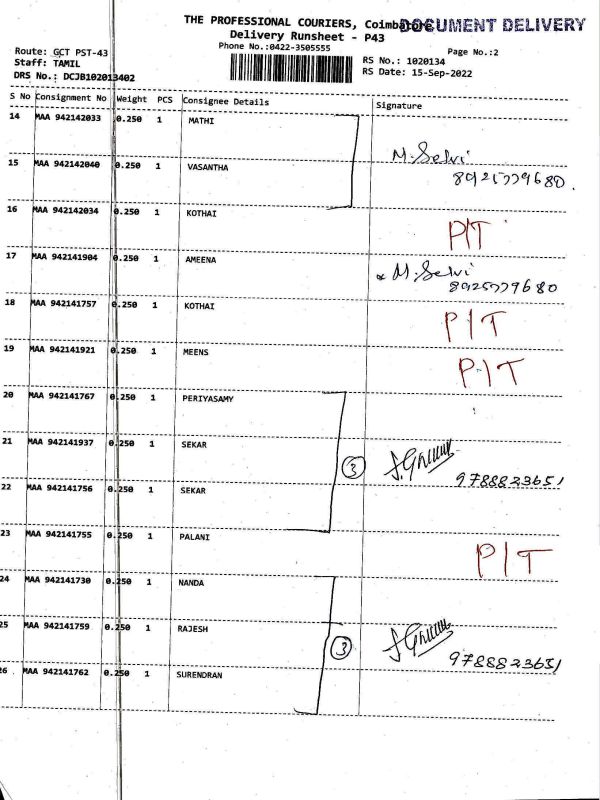 THE PROFESSIONAL COURIERS, Coimbatore
DOCUMENT DELIVERY
Delivery Runsheet - P43
Phone No.:0422-3505555
Page No.:2
Route: GCT PST-43
Staff: TAMIL
DRS No.: DCJB102013402
RS No.: 1020134
RS Date: 15-Sep-2022
S No Consignment No Weight PCS Consignee Details Signature
14 MAA 942142033 0.250 1 MATHI
M. Selvi
15 MAA 942142040 0.250 1 VASANTHA
8925779680.
16 MAA 942142034 0.250 1 KOTHAI P/T
17 MAA 941241904 0.250 1 AMEENA M. Selvi
8925779680
18 MAA 942141757 0.250 1 KOTHAI P/T
19 MAA 942141921 0.250 1 MEENS P/T
20 MAA 942141767 0.250 1 PERIYASAMY
21 MAA 942141937 0.250 1 SEKAR
3 9788823651
22 MAA 942141756 0.250 1 SEKAR
23 MAA 942141755 0.250 1 PALANI P/T
24 MAA 942141730 0.250 1 NANDA
25 MAA 942141759 0.250 1 RAJESH
3 9788823651
26 MAA 942141762 0.250 1 SURENDRAN